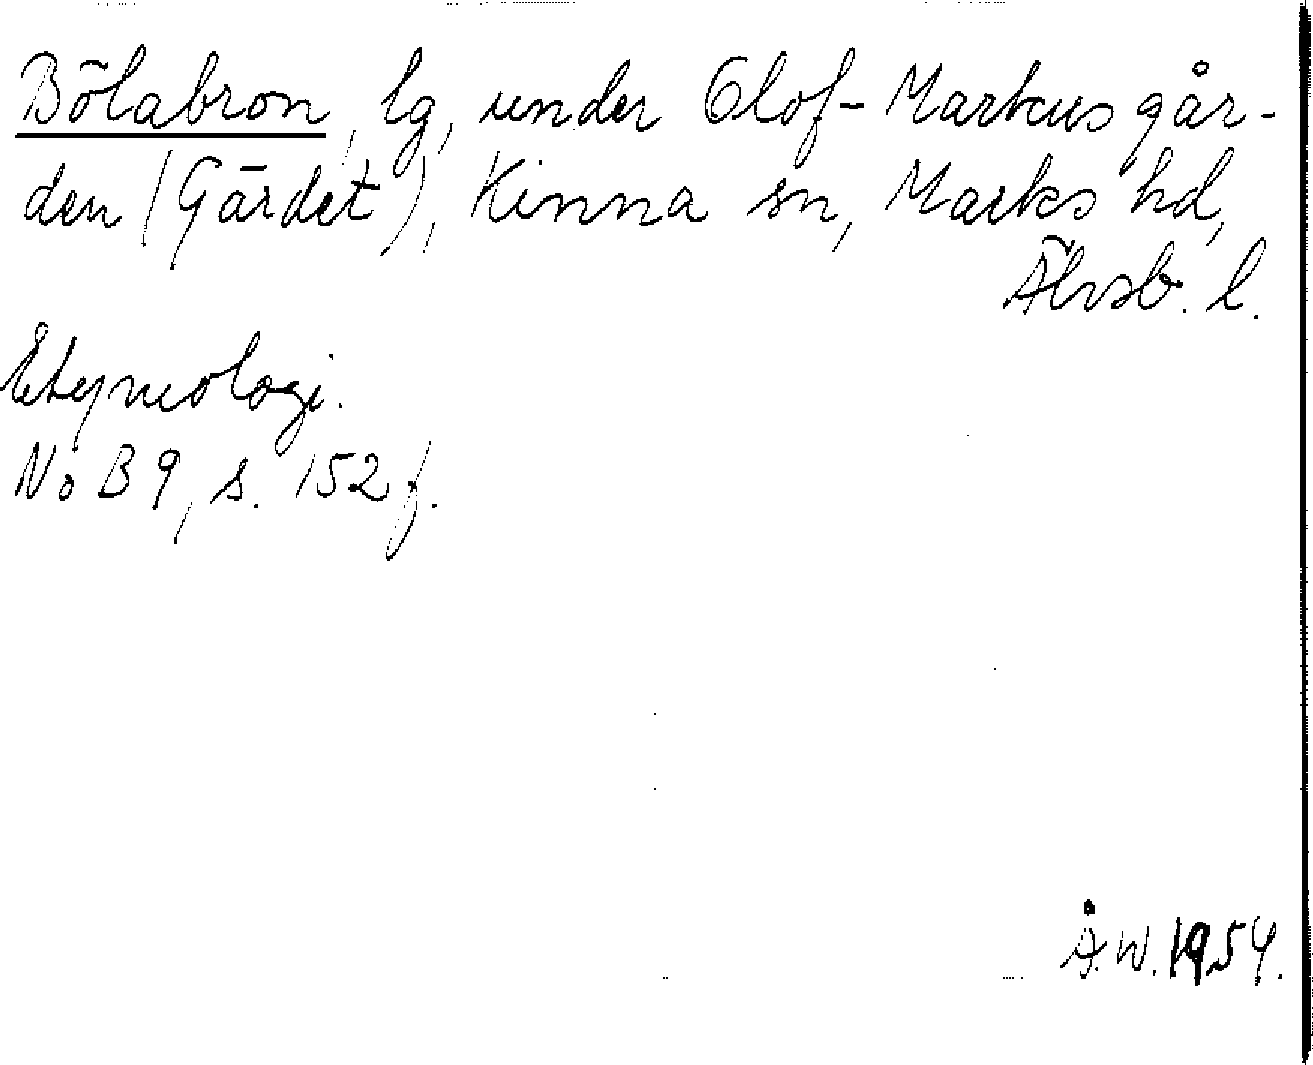 Bölabron, lg, under Olof-Markusgår-
den (Gärdet), Kinna sn, Marks hd,
Älvsb. l.
Etymologi.
NoB 9, s. 152 f.
Å.W. 1954.